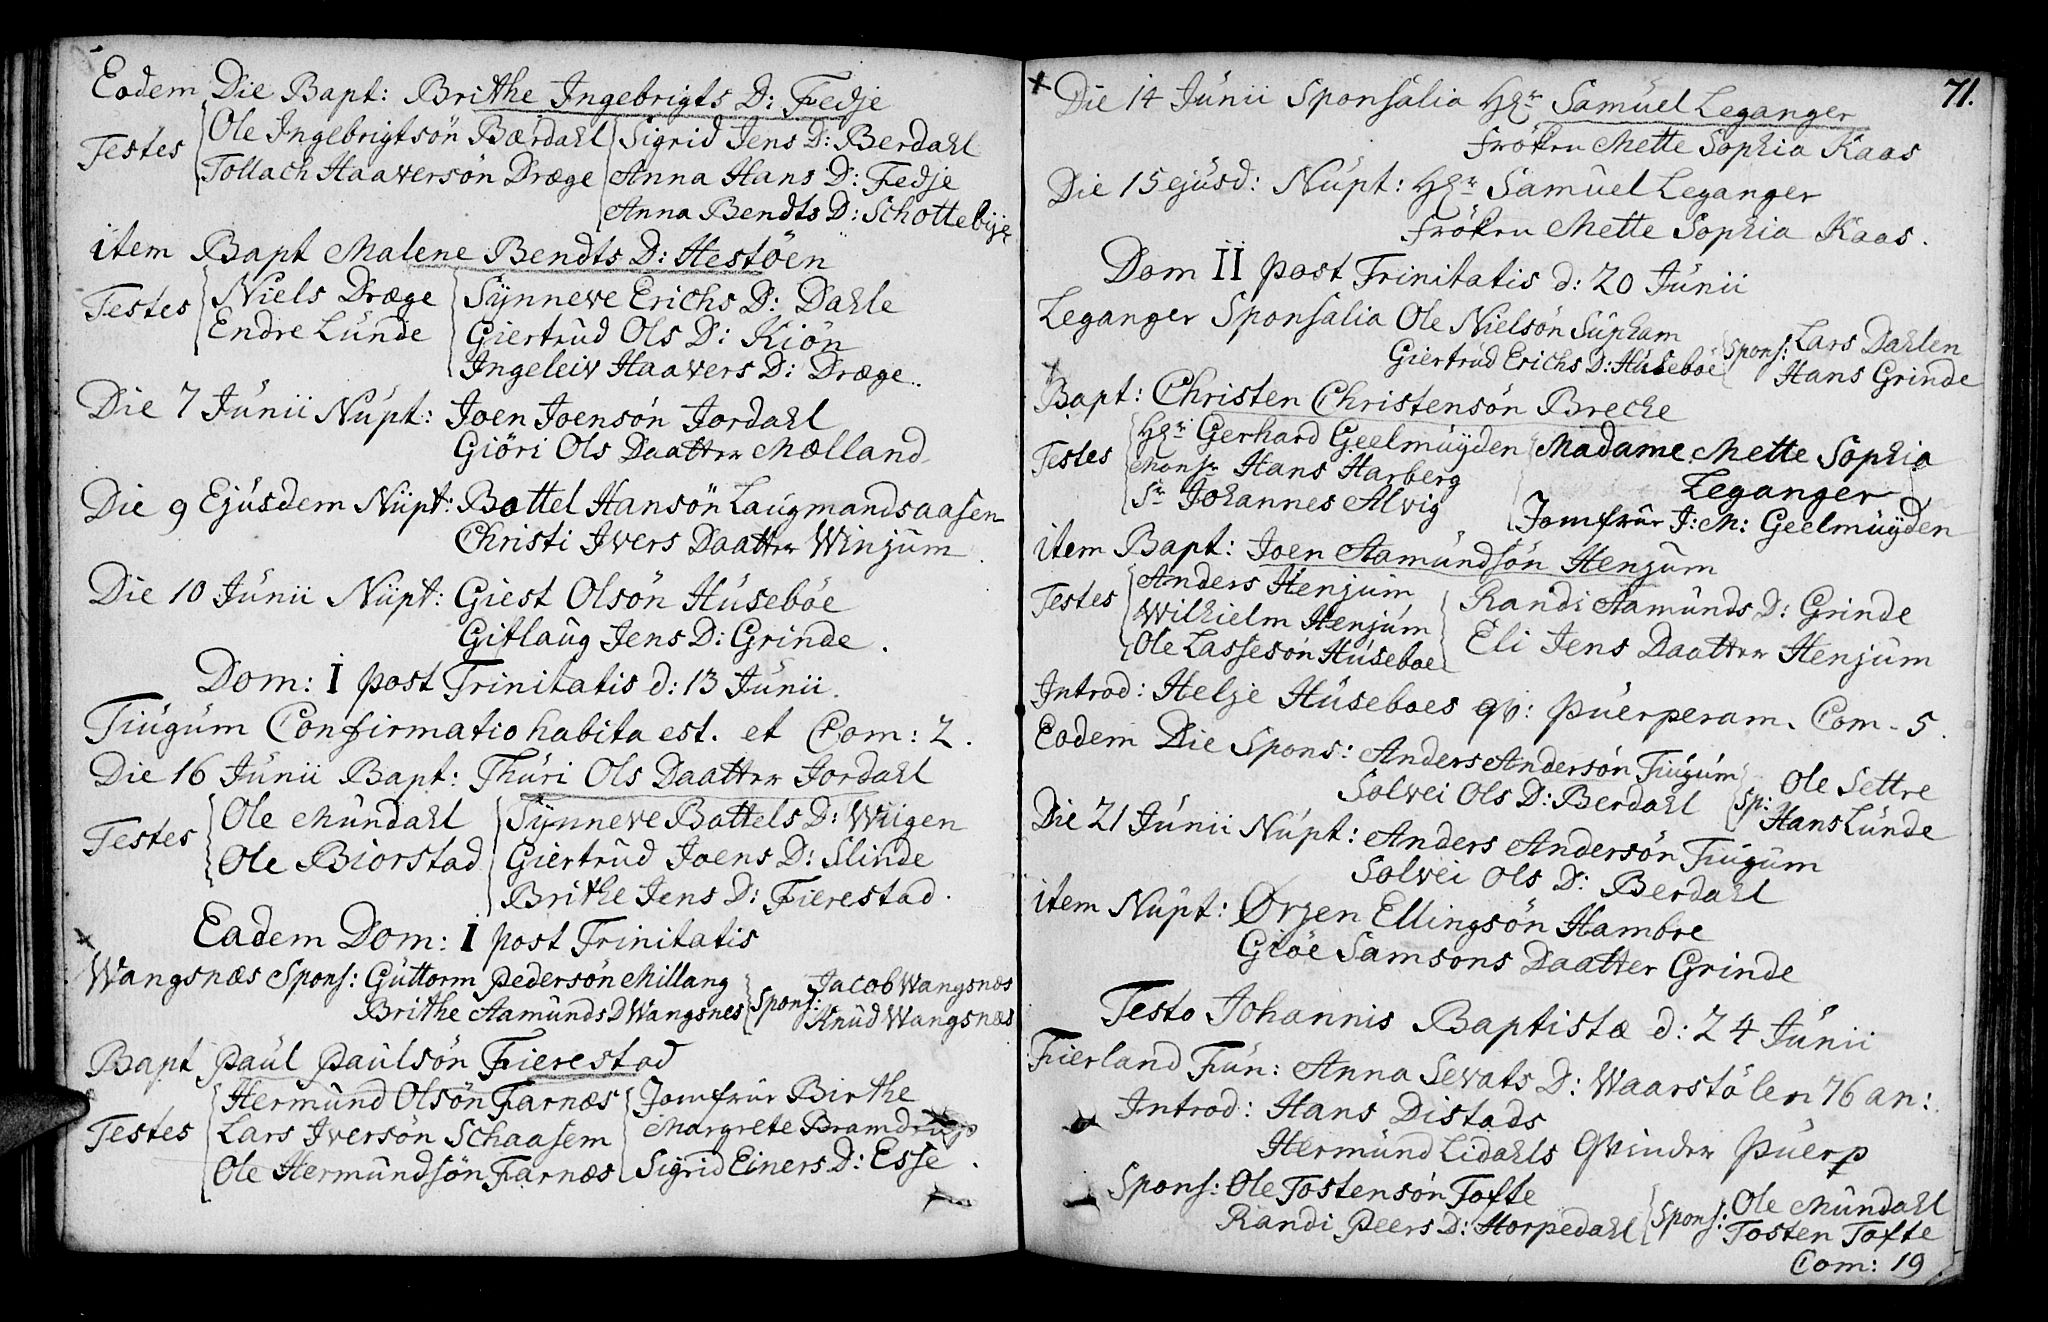 Eodem Die Bapt: Brithe Ingebrigts D: Fedje
Testes Ole Ingebrigtsön Bærdahl Sigrid Jens D: Berdahl
Tollach Haaversön Dræge Anna Hans D: Fedje
Anna Bendts D: Schottebije
item Bapt Malene Bendts D: Hestöen
Testes Niels Dræge Sÿnneve Erichs D: Dahle
Endre Lunde Giertrud Ols D: Kiön
Ingeleiv Haavers D: Dræge.
Die 7 Junii Nupt: Joen Joensön Jordahl
Giöri Ols Daatter Mælland
Die 9 Ejusdem Nupt: Battel Hansön Laugmandsaasen
Christi Ivers Daatter Winjum
Die 10 Junii Nupt: Giest Olsön Huseböe
Gitlaug Jens D: Grinde.
Dom: I post Trinitatis d: 13 Junii.
Tiugum Confirmatio habita est. et Com: 2.
Die 16 Junii Bapt: Thuri Ols Daatter Jordahl
Testes Ole Mundahl Sÿnneve Battels D: Wiigen
Ole Biorstad Giertrud Joens D: Slinde
Brithe Jens D: Fierestad.
Eadem Dom: I post Trinitatis
Wangsnæs Spons: Guttorm Pedersön Millang Spons: Jacob Wangsnæs
Brithe Aamunds D Wangsnes Knud Wangsnæs
Bapt Paul Paulsön Fierestad
Testes Hermund Olsön Farnæs Jomfrur Birthe
Lars Iversön Schaasem Margrete
Ole Hermundsön Farnæs Sigrid Einers D: Esse.
71.
Die 14 Junii Sponsalia Hr Samuel Leganger
frökn Mette Sophia Kaas
Die 15 ejusd: Nupt: Hr Samuel Leganger
frökn Mette Sophia Kaas.
Dom II post Trinitatis d: 20 Junii
Leganger Sponsalia Ole Nielsön Supham Spons: Lars Dahlen
Giertrud Erichs D: Huseböe Hans Grinde
Bapt: Christen Christensön Breche
Testes Hr Gerhard Geelmuÿden Madame Mette Sophia
Monsr Hans Harberg Leganger
Sr Johannes Alvig Jomfrur J: M: Geelmuÿden
item Bapt: Joen Aamundsön Henjum
Testes Anders Henjum Randi Aamunds D: Grinde
Wilhielm Henjum Eli Jens Daatter Henjum
Ole Lassesön Huseboe
Introd: Helje Huseboes qv: puerperam. Com - 5.
Eodem Die Spons: Anders Andersön Tiugum Sp: Ole Settre
Solvei Ols D: Berdahl Hans Lunde
Die 21 Junii Nupt: Anders Andersön Tiugum
Solvei Ols D: Berdahl
item Nupt: Ørjen Ellingsön Hambre
Giöe Samsons Daatter Grinde
Festo Johannis Baptistæ d: 24 Junii
Fierland Fun: Anna Sevats D: Waarstölen 76 an:
Introd: Hans Distads
Hermund Lidahls Qvinder puerp
Spons: Ole Tostensön Tofte Spons: Ole Mundahl
Randi Peers D: Horpedahl Tosten Tofte
Com: 19.